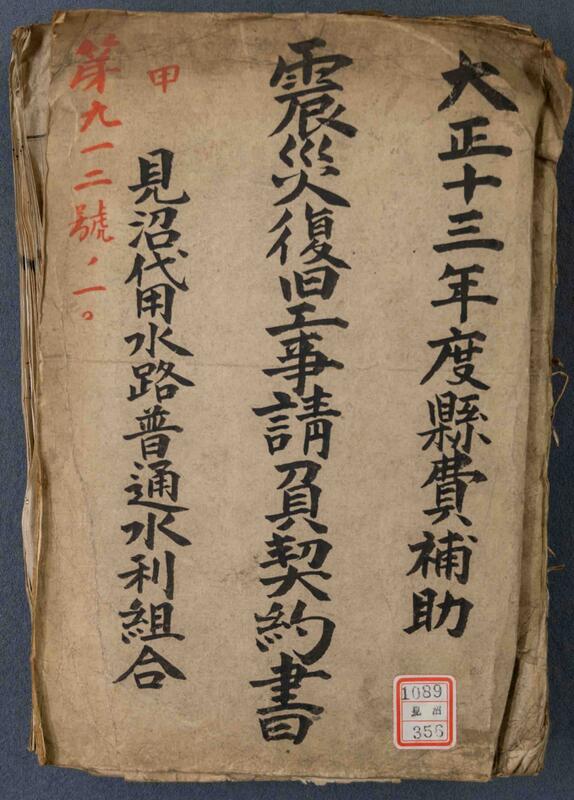 大正十三年度縣費補助
震災復旧工事請負契約書
見沼代用水路普通水利組合
甲
第九一二號ノ一。
1089
見沼
356